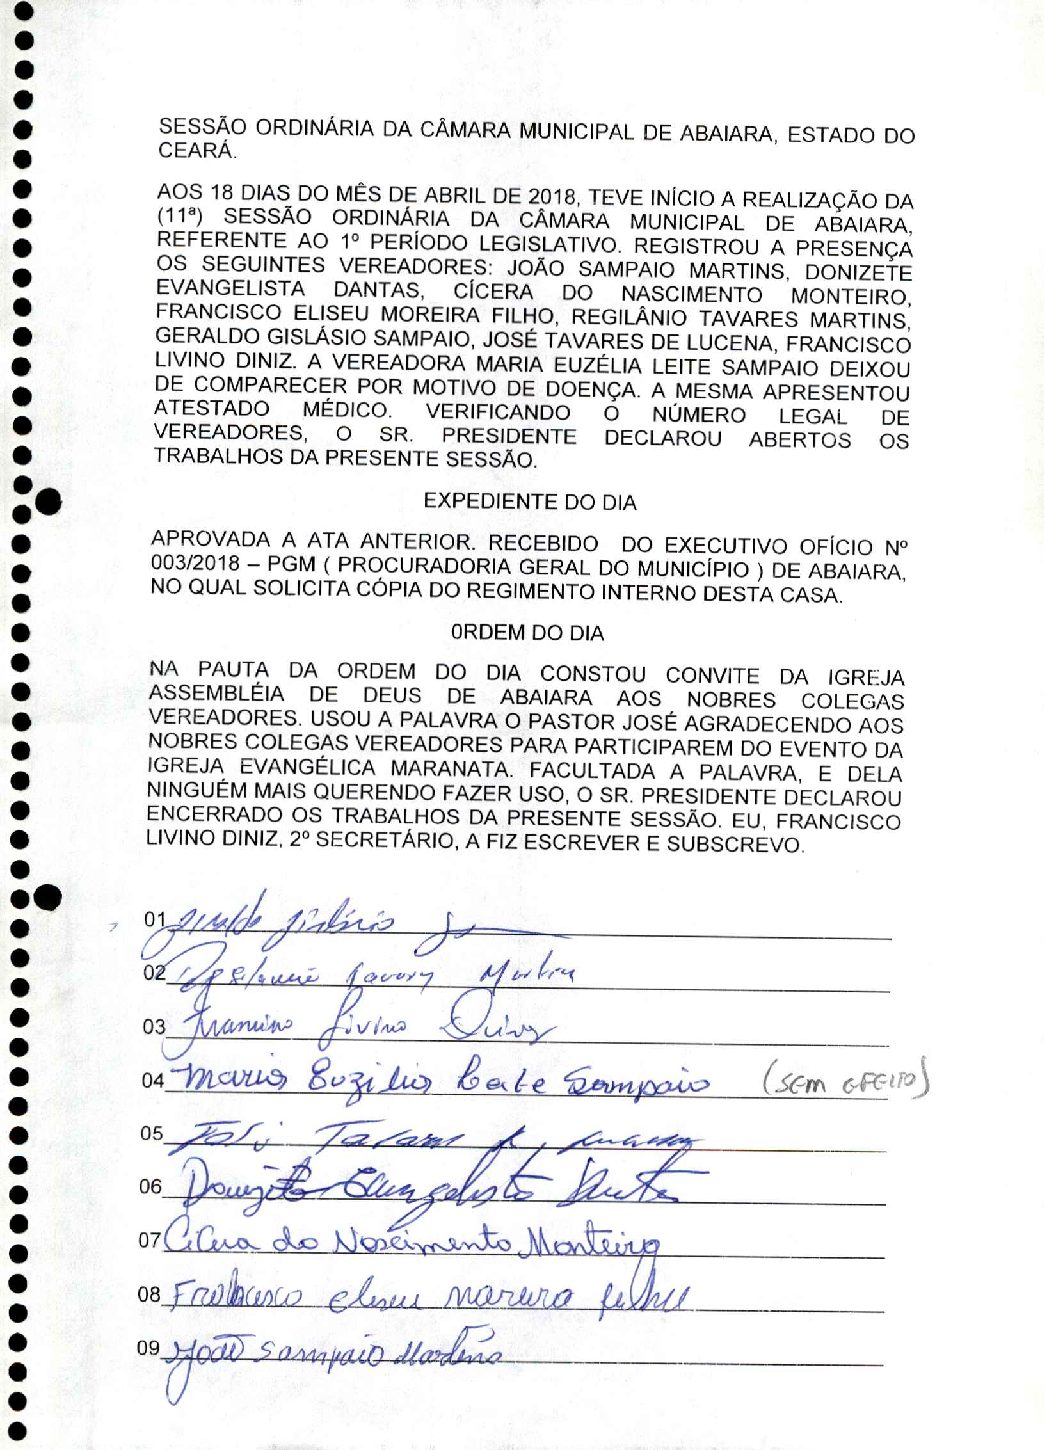 SESSÃO ORDINÁRIA DA CÂMARA MUNICIPAL DE ABAIARA, ESTADO DO
CEARÁ.
AOS 18 DIAS DO MÊS DE ABRIL DE 2018, TEVE INÍCIO A REALIZAÇÃO DA
(11ª) SESSÃO ORDINÁRIA DA CÂMARA MUNICIPAL DE ABAIARA,
REFERENTE AO 1º PERÍODO LEGISLATIVO. REGISTROU A PRESENÇA
OS SEGUINTES VEREADORES: JOÃO SAMPAIO MARTINS, DONIZETE
EVANGELISTA DANTAS, CÍCERA DO NASCIMENTO MONTEIRO,
FRANCISCO ELISEU MOREIRA FILHO, REGILÂNIO TAVARES MARTINS,
GERALDO GISLÁSIO SAMPAIO, JOSÉ TAVARES DE LUCENA, FRANCISCO
LIVINO DINIZ. A VEREADORA MARIA EUZÉLIA LEITE SAMPAIO DEIXOU
DE COMPARECER POR MOTIVO DE DOENÇA. A MESMA APRESENTOU
ATESTADO MÉDICO. VERIFICANDO O NÚMERO LEGAL DE
VEREADORES, O SR. PRESIDENTE DECLAROU ABERTOS OS
TRABALHOS DA PRESENTE SESSÃO.
EXPEDIENTE DO DIA
APROVADA A ATA ANTERIOR. RECEBIDO DO EXECUTIVO OFÍCIO Nº
003/2018 – PGM ( PROCURADORIA GERAL DO MUNICÍPIO ) DE ABAIARA,
NO QUAL SOLICITA CÓPIA DO REGIMENTO INTERNO DESTA CASA.
0RDEM DO DIA
NA PAUTA DA ORDEM DO DIA CONSTOU CONVITE DA IGREJA
ASSEMBLÉIA DE DEUS DE ABAIARA AOS NOBRES COLEGAS
VEREADORES. USOU A PALAVRA O PASTOR JOSÉ AGRADECENDO AOS
NOBRES COLEGAS VEREADORES PARA PARTICIPAREM DO EVENTO DA
IGREJA EVANGÉLICA MARANATA. FACULTADA A PALAVRA, E DELA
NINGUÉM MAIS QUERENDO FAZER USO, O SR. PRESIDENTE DECLAROU
ENCERRADO OS TRABALHOS DA PRESENTE SESSÃO. EU, FRANCISCO
LIVINO DINIZ, 2º SECRETÁRIO, A FIZ ESCREVER E SUBSCREVO.
01
02 Martins
03 Francisco Livino Diniz
04 Maria Euzélia Leite Sampaio (SEM EFEITO)
05 José Tavares
06 Donizete Evangelista Dantas
07 Cícera do Nascimento Monteiro
08 Francisco eliseu moreira filho
09 João Sampaio Martins